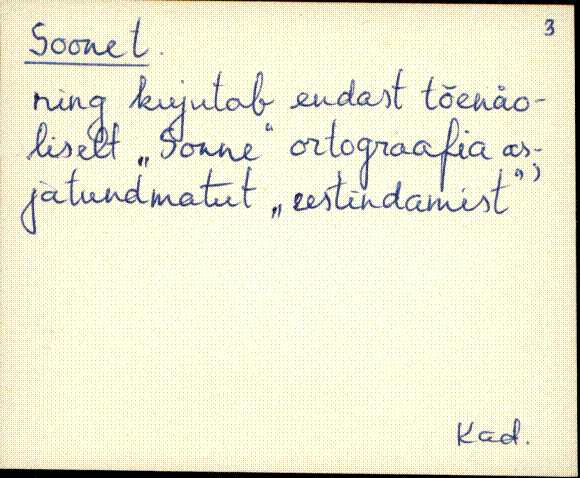 3
Soonet.
ning kujutab endast tõenäo-
liselt „Sonne“ ortograafia as-
jatundmatut „eestindamist“)
Kad.